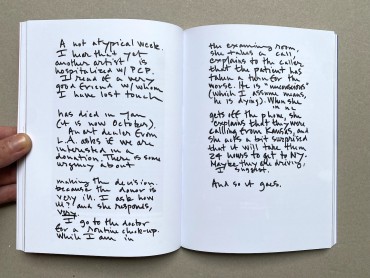 A not atypical week.
I hear that yet
another artist is
hospitalized w/ PCP.
I read of a very
good friend w/ whom
I have lost touch
has died in Jan.
(it is now October).
An art dealer from
L.A. asks if we are
interested in a
donation. There is some
urgency about
making the decision.
because the donor is
very ill. I ask how
ill? and she responds,
very.
I go to the doctor
for a routine check-up.
While I am in
the examining room,
she takes a call.
explains to the caller
that the patient has
taken a turn for the
worse. He is "unconscious"
(which I assume means,
he is dying). When she
gets off the phone, she
explains that they were
calling from Kansas, and
she acts a bit surprised
that it will take them
24 hours to get to NY.
Maybe they are driving,
I suggest.
And so it goes.